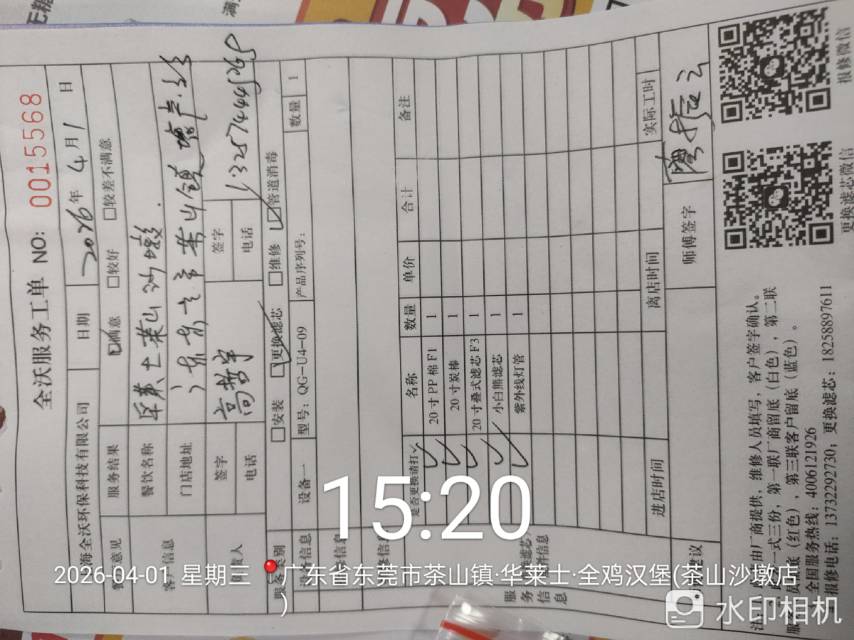 全沃服务工单 NO: 0015568
海全沃环保科技有限公司 日期 2026年4月1日
意见 服务结果 ☑满意 □较好 □较差不满意
客户信息 餐饮名称 华莱士茶山沙墩
门店地址 广东东莞市茶山镇
签字 签字
电话 电话 13257444
服务类别 □安装 ☑更换滤芯 □维修 ☑管道消毒
设备信息 设备一 型号: QG-U4-09 产品序列号: 数量 1
是否更换请打✓ 名称 数量 单价 合计 备注
✓ 20寸PP棉F1 1
✓ 20寸炭棒 1
✓ 20寸叠式滤芯F3 1
✓ 小白熊滤芯 1
✓ 紫外线灯管 1
服务信息
进店时间 离店时间 实际工时
建议 师傅签字
由厂商提供，维修人员填写，客户签字确认。
一式三份，第一联厂商留底（白色），第二联
员留底（红色），第三联客户留底（蓝色）。
全国服务热线: 4006121926
报修电话: 13732292730; 更换滤芯: 18258897611
更换滤芯微信
报修微信
15:20
2026-04-01 星期三 广东省东莞市茶山镇·华莱士·全鸡汉堡(茶山沙墩店
)
水印相机